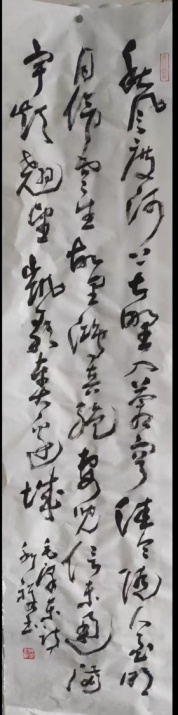 秋风度河上大野入苍穹佳令随人至明
月傍雲生故里鸿音绝妻儿信未通满
宇频翘望凯歌奏边城
毛泽东诗
书